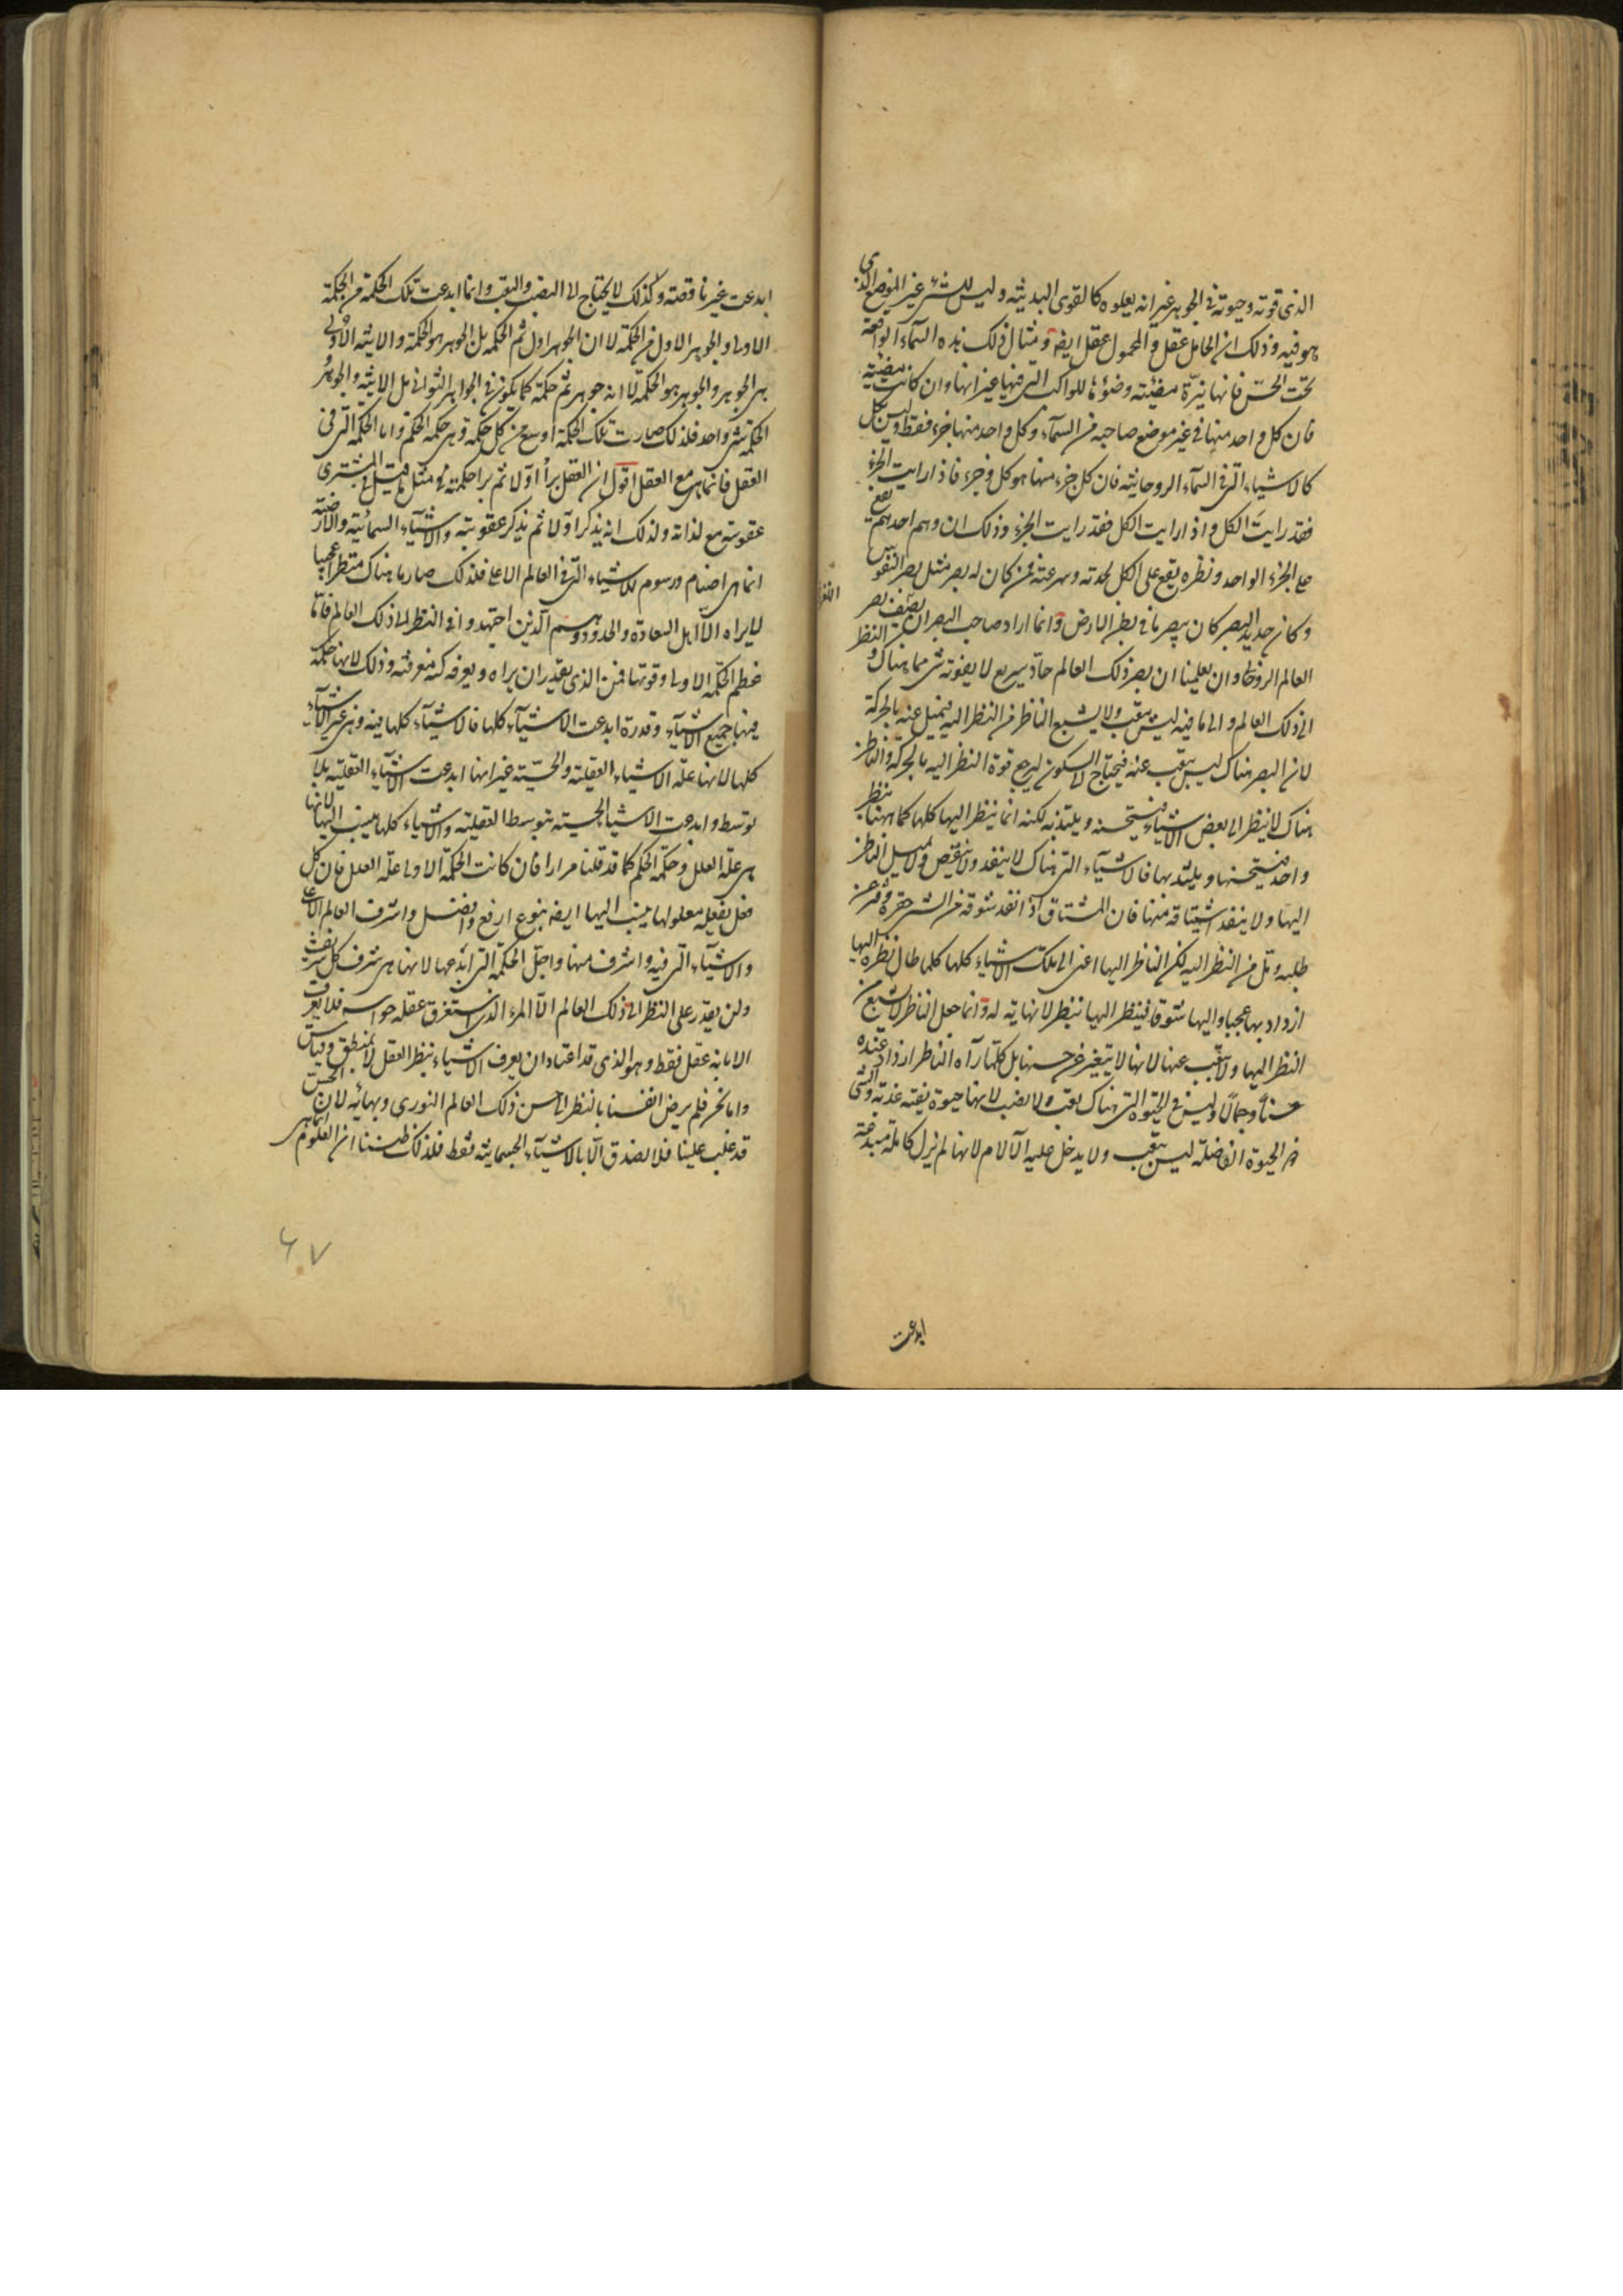 الذى قوته وحيوته فى الجوهر غير انه يعلوه كالقوى البدنيته وليس للشئ غير الموضع الذى
هو فيه وذلك ان الحامل عقل والمحمول عقل ايضه ومثال ذلك هذه السمآء الواقعة
تحت الحسّ فانها نيّرة مضيئة وضوءها للكواكب التى فيها غير انها وان كانت مضيئة
فان كل واحد منها فى غير موضع صاحبه من السمآء وكل واحد منها جزء فقط وليس بكل
كالاشياء التى فى السمآء الروحانيته فان كل جزء منها هو كل وجزء فاذا رايت الجزء
فقد رايت الكل واذا رايت الكل فقد رايت الجزء وذلك ان وهم احدهم يقع
على الجزء الواحد ونظره يقع على الكل لحدته وسرعته فمن كان له بصر مثل بصر النفوس
وكان حديد البصر كان يبصر ما فى بطن الارض وانما اراد صاحب البصر ان يصف بصر
العالم الروحانى وان يعلمنا ان بصر ذلك العالم حادّ سريع لا يفوته شئ مما هناك والنظر
الى ذلك العالم والى ما فيه ليس يتعب ولا يشبع الناظر من النظر اليه فيميل عنه بالحركة
لان البصر هناك ليس يتعب عنه فيحتاج الى السكون ليرجع قوة النظر اليه بالحركة والناظر
هناك لا ينظر الى بعض الاشياء فيستحسنه ويلتذ به لكنه انما ينظر اليها كلها كما ههنا ينظر
واحد فيستحسنها ويلتذ بها فالاشيآء التى هناك لا ينفد ولا ينقص ولا يميل الناظر
اليها ولا ينفد اشتياقه منها فان المشتاق اذا نفد شوقه من الشئ حقره وفرّ عن
طلبه وقل من النظر اليه لكن الناظر اليها اعنى الى تلك الاشياء كلها كلما طال نظره اليها
ازداد بها عجبا واليها شوقا فينظر اليها بنظر لا نهاية له وانما جعل الناظر لا يشبع من
النظر اليها ولا يتعب عنها لانها لا يتغير عن حسنها بل كلما رآه الناظر ازداد عنده
حسنا وجمالا وليس فى الحيوة التى هناك تعب ولا نصب لانها حيوة نقية عذبة والشئ
ذو الحيوة الفاضلة ليس يتعب ولا يدخل عليه الآلام لانها لم يزل كاملة مبدعة
ابدعت
ابدعت غير ناقصة وكذلك لا يحتاج الى النصب والتعب وانما ابدعت تلك الحكمة من الحكمة
الاولى والجوهر الاول من الحكمة لا ان الجوهر اول ثم الحكمة بل الجوهر هو الحكمة والانيته الاولى
هى الجوهر والجوهر هو الحكمة لا انه جوهر ثم حكمة كما يكون فى الجواهر الثوانى بل الانيته والجوهر
والحكمة شئ واحد فلذلك صارت تلك الحكمة اوسع من كل حكمة وهى حكمة الحكم واما الحكمة التى فى
العقل فانما هى مع العقل اقول ان العقل برأ اوّلا ثم برا حكمته مثل ما قيل فى المشترى
عقوبته مع لذاته ولذلك انه يذكر اوّلا ثم يذكر عقوبته والاشيآء السمائية والارضية
انما هى اصنام ورسوم للاشياء التى فى العالم الاعلى فلذلك صار ما هناك منظرا عجيبا
لا يراه الا اهل السعادة والجدود وهم الذين اجتهدوا فى النظر الى ذلك العالم فاما
عظم الحكمة الاولى وقوتها فمن الذى يقدر ان يراه ويعرفه كنه معرفته وذلك لانها حكمة
فيها جميع الاشيآء وقدرة ابدعت الاشيآء كلها فالاشيآء كلها فيه وهى غير الاشيآء
كلها لانها علّة الاشياء العقلية والحسيّة غير انها ابدعت الاشيآء العقليّة بلا
توسط وابدعت الاشيا الحسية بتوسط العقلية والاشياء كلها ينسب اليها لانها
هى علّة العلل وحكمة الحكم كما قد قلنا مرارا فان كانت الحكمة الاولى علّة العلل فان كل
فعل يفعله معلولها ينسب اليها ايضه بنوع ارفع وافضل واشرف العالم الاعلى
والاشيآء التى فيه واشرف منها واجلّ الحكمة التى ابدعها لانها هى شرف كل شرف
ولن يقدر على النظر الى ذلك العالم الّا المرء الذى استغرق عقله حواسه فلا يعرف
الا بانه عقل فقط وهو الذى قد اعتاد ان يعرف الاشياء بنظر العقل لا بمنطق وقياس
واما نحن فلم يرض انفسنا بالنظر الى حسن ذلك العالم النورى وبهائه لان الحسّ
قد غلب علينا فلا نصدق الّا بالاشيآء الجسمانية فقط فلذلك ظننا ان العلوم انما هى
٦٧